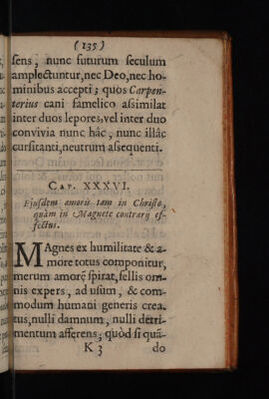 (135)
sens, nunc futurum seculum
amplectuntur, nec Deo, nec ho-
minibus accepti; quos Carpen-
terius cani famelico assimilat
inter duos lepores, vel inter duo
convivia nunc hác, nunc illác
cursitanti, neutrum assequenti.
CAP. XXXVI.
Ejusdem amoris tam in Christo,
quàm in Magnete contrarÿ ef-
fectus.
MAgnes ex humilitate & a-
more totus componitur,
merum amorẽ spirat, fellis om-
nis expers, ad usum, & com-
modum humani generis crea-
tus, nulli damnum, nulli detri-
mentum afferens; quòd si quã-
K 3 do